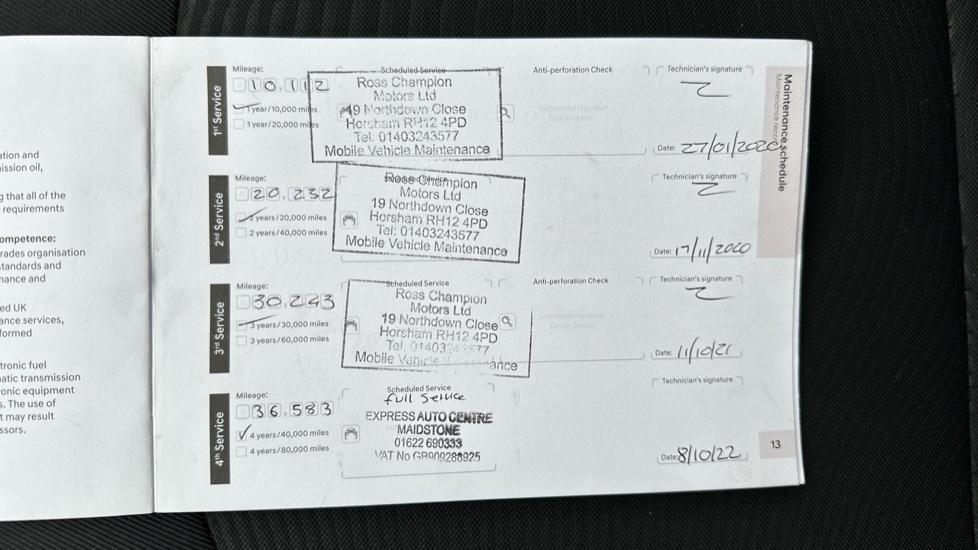 ation and
ission oil,
g that all of the
requirements
ompetence:
rades organisation
standards and
nance and
ed UK
ance services,
formed
tronic fuel
atic transmission
onic equipment
s. The use of
t may result
ssors.
Maintenance schedule
1st Service
Mileage:
10,112
1 year/10,000 miles
1 year/20,000 miles
Scheduled Service
Ross Champion
Motors Ltd
49 Northdown Close
Horsham RH12 4PD
Tel: 01403243577
Mobile Vehicle Maintenance
Anti-perforation Check
Technician's signature
Date: 27/01/2020
2nd Service
Mileage:
20,232
2 years/20,000 miles
2 years/40,000 miles
Ross Champion
Motors Ltd
19 Northdown Close
Horsham RH12 4PD
Tel: 01403243577
Mobile Vehicle Maintenance
Technician's signature
Date: 17/11/2020
3rd Service
Mileage:
30,243
3 years/30,000 miles
3 years/60,000 miles
Scheduled Service
Ross Champion
Motors Ltd
19 Northdown Close
Horsham RH12 4PD
Mobile
Anti-perforation Check
Technician's signature
Date: 11/10/21
4th Service
Mileage:
36,583
4 years/40,000 miles
4 years/80,000 miles
Scheduled Service
full Service
EXPRESS AUTO CENTRE
MAIDSTONE
01622 690333
VAT No
Technician's signature
Date: 8/10/22
13